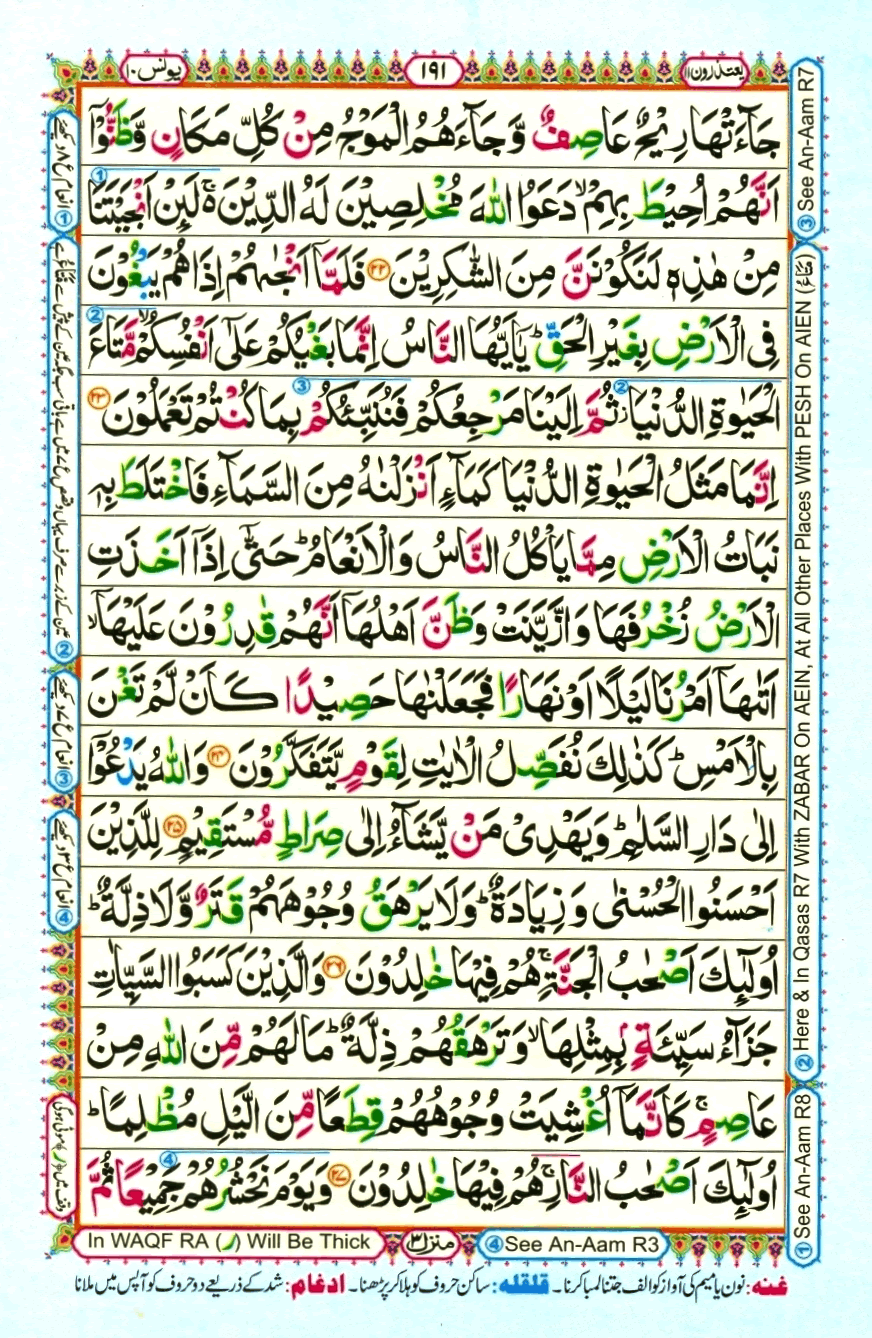 یونس ١٠
١٩١
یعتذرون ١١
جَآءَتْهَا رِیْحٌ عَاصِفٌ وَّ جَآءَهُمُ الْمَوْجُ مِنْ كُلِّ مَكَانٍ وَّظَنُّوْۤا
اَنَّهُمْ اُحِیْطَ بِهِمْ ۙ دَعَوُا اللّٰهَ مُخْلِصِیْنَ لَهُ الدِّیْنَ ۚ۬ لَىِٕنْ اَنْجَیْتَنَا
مِنْ هٰذِهٖ لَنَكُوْنَنَّ مِنَ الشّٰكِرِیْنَ ﴿۲۲﴾ فَلَمَّاۤ اَنْجٰىهُمْ اِذَا هُمْ یَبْغُوْنَ
فِی الْاَرْضِ بِغَیْرِ الْحَقِّ ؕ یٰۤاَیُّهَا النَّاسُ اِنَّمَا بَغْیُكُمْ عَلٰۤی اَنْفُسِكُمْ ۙ مَّتَاعَ
الْحَیٰوةِ الدُّنْیَا ؗ ثُمَّ اِلَیْنَا مَرْجِعُكُمْ فَنُنَبِّئُكُمْ بِمَا كُنْتُمْ تَعْمَلُوْنَ ﴿۲۳﴾
اِنَّمَا مَثَلُ الْحَیٰوةِ الدُّنْیَا كَمَآءٍ اَنْزَلْنٰهُ مِنَ السَّمَآءِ فَاخْتَلَطَ بِهٖ
نَبَاتُ الْاَرْضِ مِمَّا یَاْكُلُ النَّاسُ وَالْاَنْعَامُ ؕ حَتّٰۤی اِذَاۤ اَخَذَتِ
الْاَرْضُ زُخْرُفَهَا وَازَّیَّنَتْ وَظَنَّ اَهْلُهَاۤ اَنَّهُمْ قٰدِرُوْنَ عَلَیْهَاۤ ۙ
اَتٰىهَاۤ اَمْرُنَا لَیْلًا اَوْ نَهَارًا فَجَعَلْنٰهَا حَصِیْدًا كَاَنْ لَّمْ تَغْنَ
بِالْاَمْسِ ؕ كَذٰلِكَ نُفَصِّلُ الْاٰیٰتِ لِقَوْمٍ یَّتَفَكَّرُوْنَ ﴿۲۴﴾ وَاللّٰهُ یَدْعُوْۤا
اِلٰی دَارِ السَّلٰمِ ؕ وَیَهْدِیْ مَنْ یَّشَآءُ اِلٰی صِرَاطٍ مُّسْتَقِیْمٍ ﴿۲۵﴾ لِلَّذِیْنَ
اَحْسَنُوا الْحُسْنٰی وَ زِیَادَةٌ ؕ وَلَا یَرْهَقُ وُجُوْهَهُمْ قَتَرٌ وَّلَا ذِلَّةٌ ؕ
اُولٰٓىِٕكَ اَصْحٰبُ الْجَنَّةِ ۚ هُمْ فِیْهَا خٰلِدُوْنَ ﴿۲۶﴾ وَالَّذِیْنَ كَسَبُوا السَّیِّاٰتِ
جَزَآءُ سَیِّئَةٍۭ بِمِثْلِهَا ۙ وَتَرْهَقُهُمْ ذِلَّةٌ ؕ مَا لَهُمْ مِّنَ اللّٰهِ مِنْ
عَاصِمٍ ۚ كَاَنَّمَاۤ اُغْشِیَتْ وُجُوْهُهُمْ قِطَعًا مِّنَ الَّیْلِ مُظْلِمًا ؕ
اُولٰٓىِٕكَ اَصْحٰبُ النَّارِ ۚ هُمْ فِیْهَا خٰلِدُوْنَ ﴿۲۷﴾ وَیَوْمَ نَحْشُرُهُمْ جَمِیْعًا ثُمَّ
③ See An-Aam R7
② Here & In Qasas R7 With ZABAR On AEIN, At All Other Places With PESH On AIEN (مَتَاعُ)
① See An-Aam R8
① انعام ع ٨ دیکھئے
③ انعام ع ٧ دیکھئے
④ انعام ع ٣ دیکھئے
وقف میں (ر) موٹی ہوگی
In WAQF RA (ر) Will Be Thick
منزل ٣
④ See An-Aam R3
غنه: نون یا میم کی آواز کو الف جتنا لمبا کرنا۔ قلقله: ساکن حروف کو ہلا کر پڑھنا۔ ادغام: شد کے ذریعے دو حروف کو آپس میں ملانا